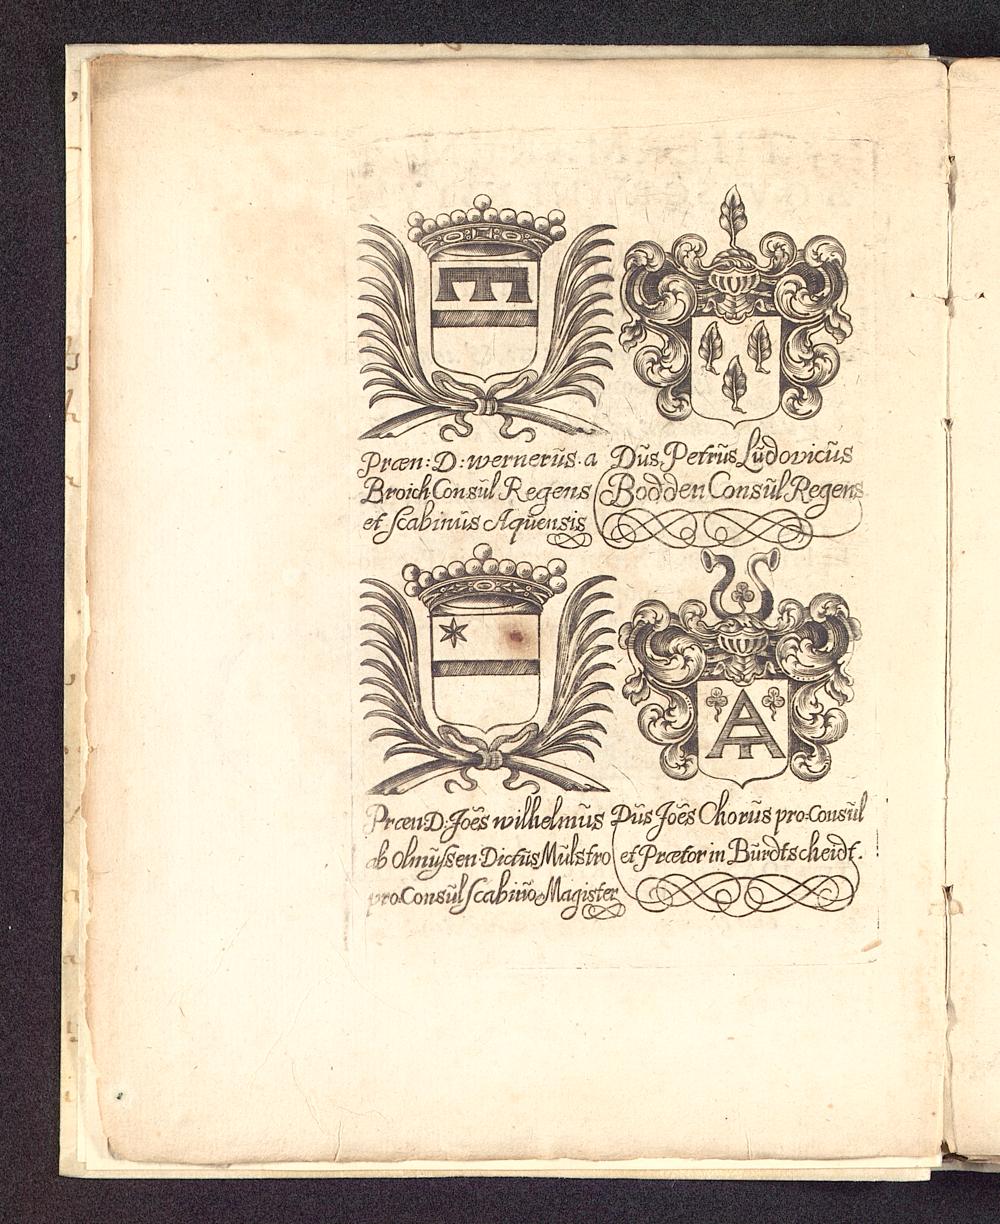 Præn: D: wernerūs. a
Broich Consūl Regens
et scabinūs Aqūensis
Dūs. Petrūs Lūdovicūs
Bodden Consūl Regens
PrænD. Joēs wilhelmūs
ab Olmūssen Dictūs Mūlstro
pro.Consūl scabinō Magister
Dūs Joēs Chorūs pro-Consūl
et Prætor in Būrdtscheidt.